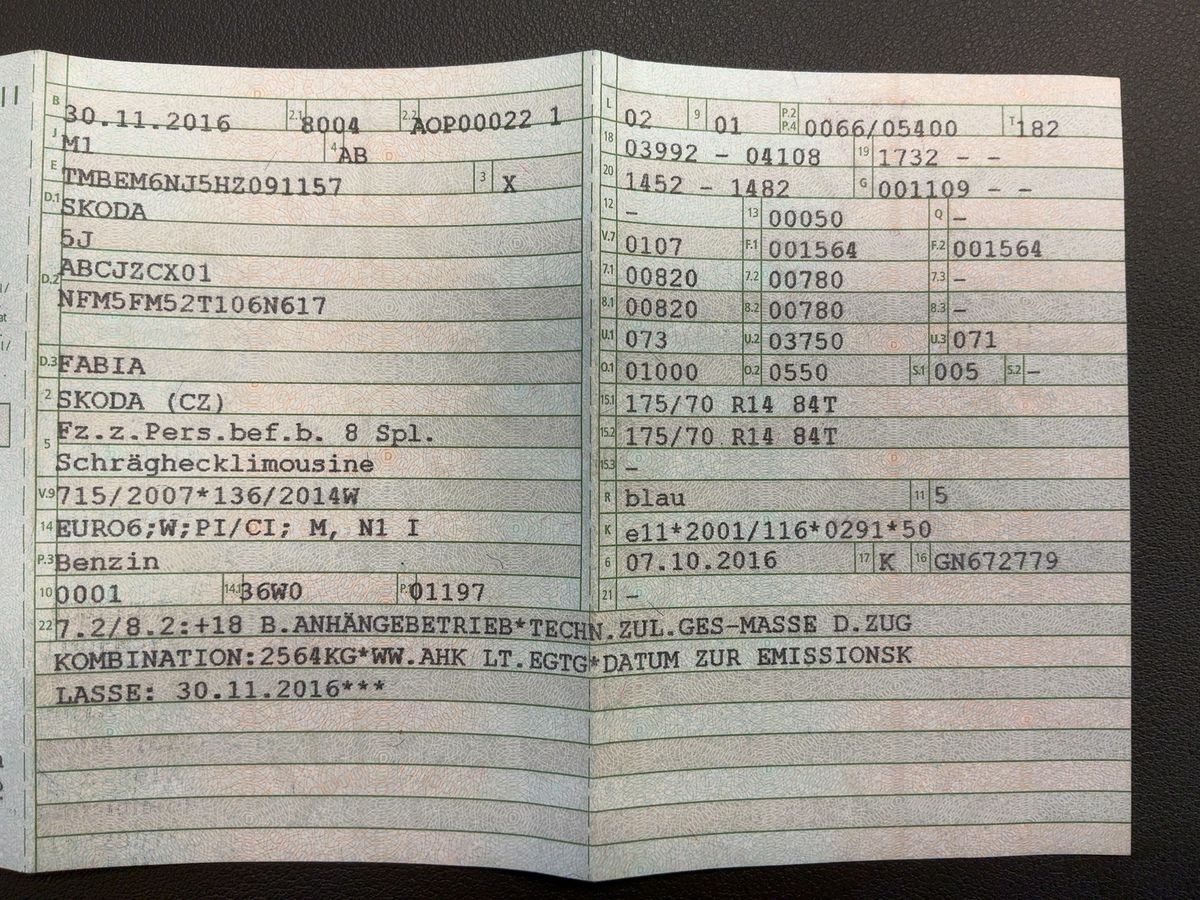 B 30.11.2016 2.1 8004 2.2 AOP00022 1
J M1 4 AB
E TMBEM6NJ5HZ091157 3 X
D.1 SKODA
D.2 5J
ABCJZCX01
NFM5FM52T106N617
D.3 FABIA
2 SKODA (CZ)
5 Fz.z.Pers.bef.b. 8 Spl.
Schräghecklimousine
V.9 715/2007*136/2014W
14 EURO6;W;PI/CI; M, N1 I
P.3 Benzin
10 0001 14.1 36W0 P.1 01197
L 02 9 01 P.2 P.4 0066/05400 T 182
18 03992 - 04108 19 1732 - -
20 1452 - 1482 G 001109 - -
12 - 13 00050 Q -
V.7 0107 F.1 001564 F.2 001564
7.1 00820 7.2 00780 7.3 -
8.1 00820 8.2 00780 8.3 -
U.1 073 U.2 03750 U.3 071
O.1 01000 O.2 0550 S.1 005 S.2 -
15.1 175/70 R14 84T
15.2 175/70 R14 84T
15.3 -
R blau 11 5
K e11*2001/116*0291*50
6 07.10.2016 17 K 16 GN672779
21 -
22 7.2/8.2:+18 B.ANHÄNGEBETRIEB*TECHN.ZUL.GES-MASSE D.ZUG
KOMBINATION:2564KG*WW.AHK LT.EGTG*DATUM ZUR EMISSIONSK
LASSE: 30.11.2016***